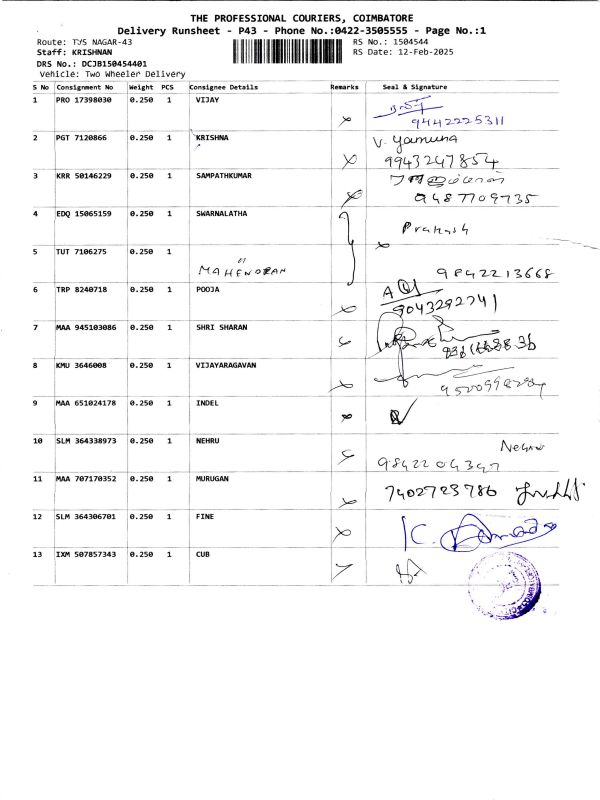 THE PROFESSIONAL COURIERS, COIMBATORE
Delivery Runsheet - P43 - Phone No.:0422-3505555 - Page No.:1
Route: TVS NAGAR-43 RS No.: 1504544
Staff: KRISHNAN RS Date: 12-Feb-2025
DRS No.: DCJB150454401
Vehicle: Two Wheeler Delivery
S No Consignment No Weight PCS Consignee Details Remarks Seal & Signature
1 PRO 17398030 0.250 1 VIJAY
9442225311
2 PGT 7120866 0.250 1 KRISHNA V. Yamuna
9943247854
3 KRR 50146229 0.250 1 SAMPATHKUMAR
9487709735
4 EDQ 15065159 0.250 1 SWARNALATHA
Prakash
5 TUT 7106275 0.250 1
MAHENDRAN 9842213668
6 TRP 8240718 0.250 1 POOJA
9043292741
7 MAA 945103086 0.250 1 SHRI SHARAN
8 KMU 3646008 0.250 1 VIJAYARAGAVAN
9 MAA 651024178 0.250 1 INDEL
10 SLM 364338973 0.250 1 NEHRU Nehru
9842204347
11 MAA 707170352 0.250 1 MURUGAN
7402723786
12 SLM 364306701 0.250 1 FINE
13 IXM 507857343 0.250 1 CUB